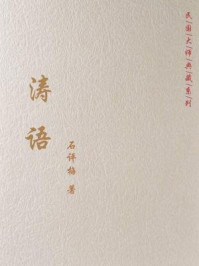 民|国|大|师|典|藏|系|列
涛语
石评梅 著